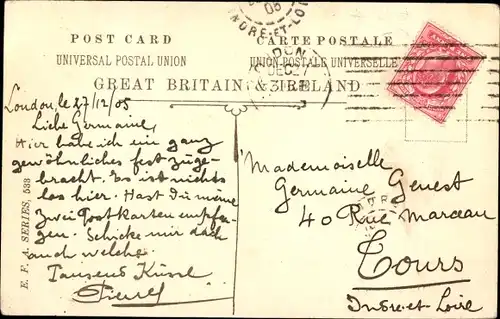 POST CARD
UNIVERSAL POSTAL UNION
CARTE POSTALE
UNION POSTALE UNIVERSELLE
GREAT BRITAIN & IRELAND
05
INDRE-ET-LOI
DON
DEC 27
London, le 27/12/05
Liebe Germaine,
Hier habe ich ein ganz
gewöhnliches fest zuge-
bracht. Es ist nichts
los hier. Hast du meine
zwei Postkarten empfan-
gen. Schicke mir doch
auch welche.
Tausend Küsse
E. F. A. SERIES, 533
Mademoiselle
Germaine Genest
40 Rue Marceau
Tours
Indre-et-Loire